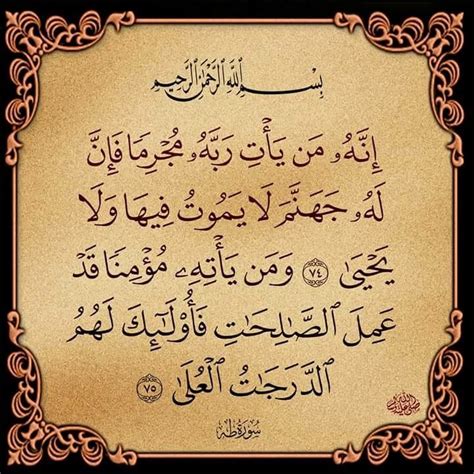 بِسْمِ اللَّهِ الرَّحْمَٰنِ الرَّحِيمِ
إِنَّهُۥ مَن يَأْتِ رَبَّهُۥ مُجْرِمًا فَإِنَّ
لَهُۥ جَهَنَّمَ لَا يَمُوتُ فِيهَا وَلَا
يَحْيَىٰ ٧٤ وَمَن يَأْتِهِۦ مُؤْمِنًا قَدْ
عَمِلَ ٱلصَّٰلِحَٰتِ فَأُو۟لَٰٓئِكَ لَهُمُ
ٱلدَّرَجَٰتُ ٱلْعُلَىٰ ٧٥
سُورَةُ طه